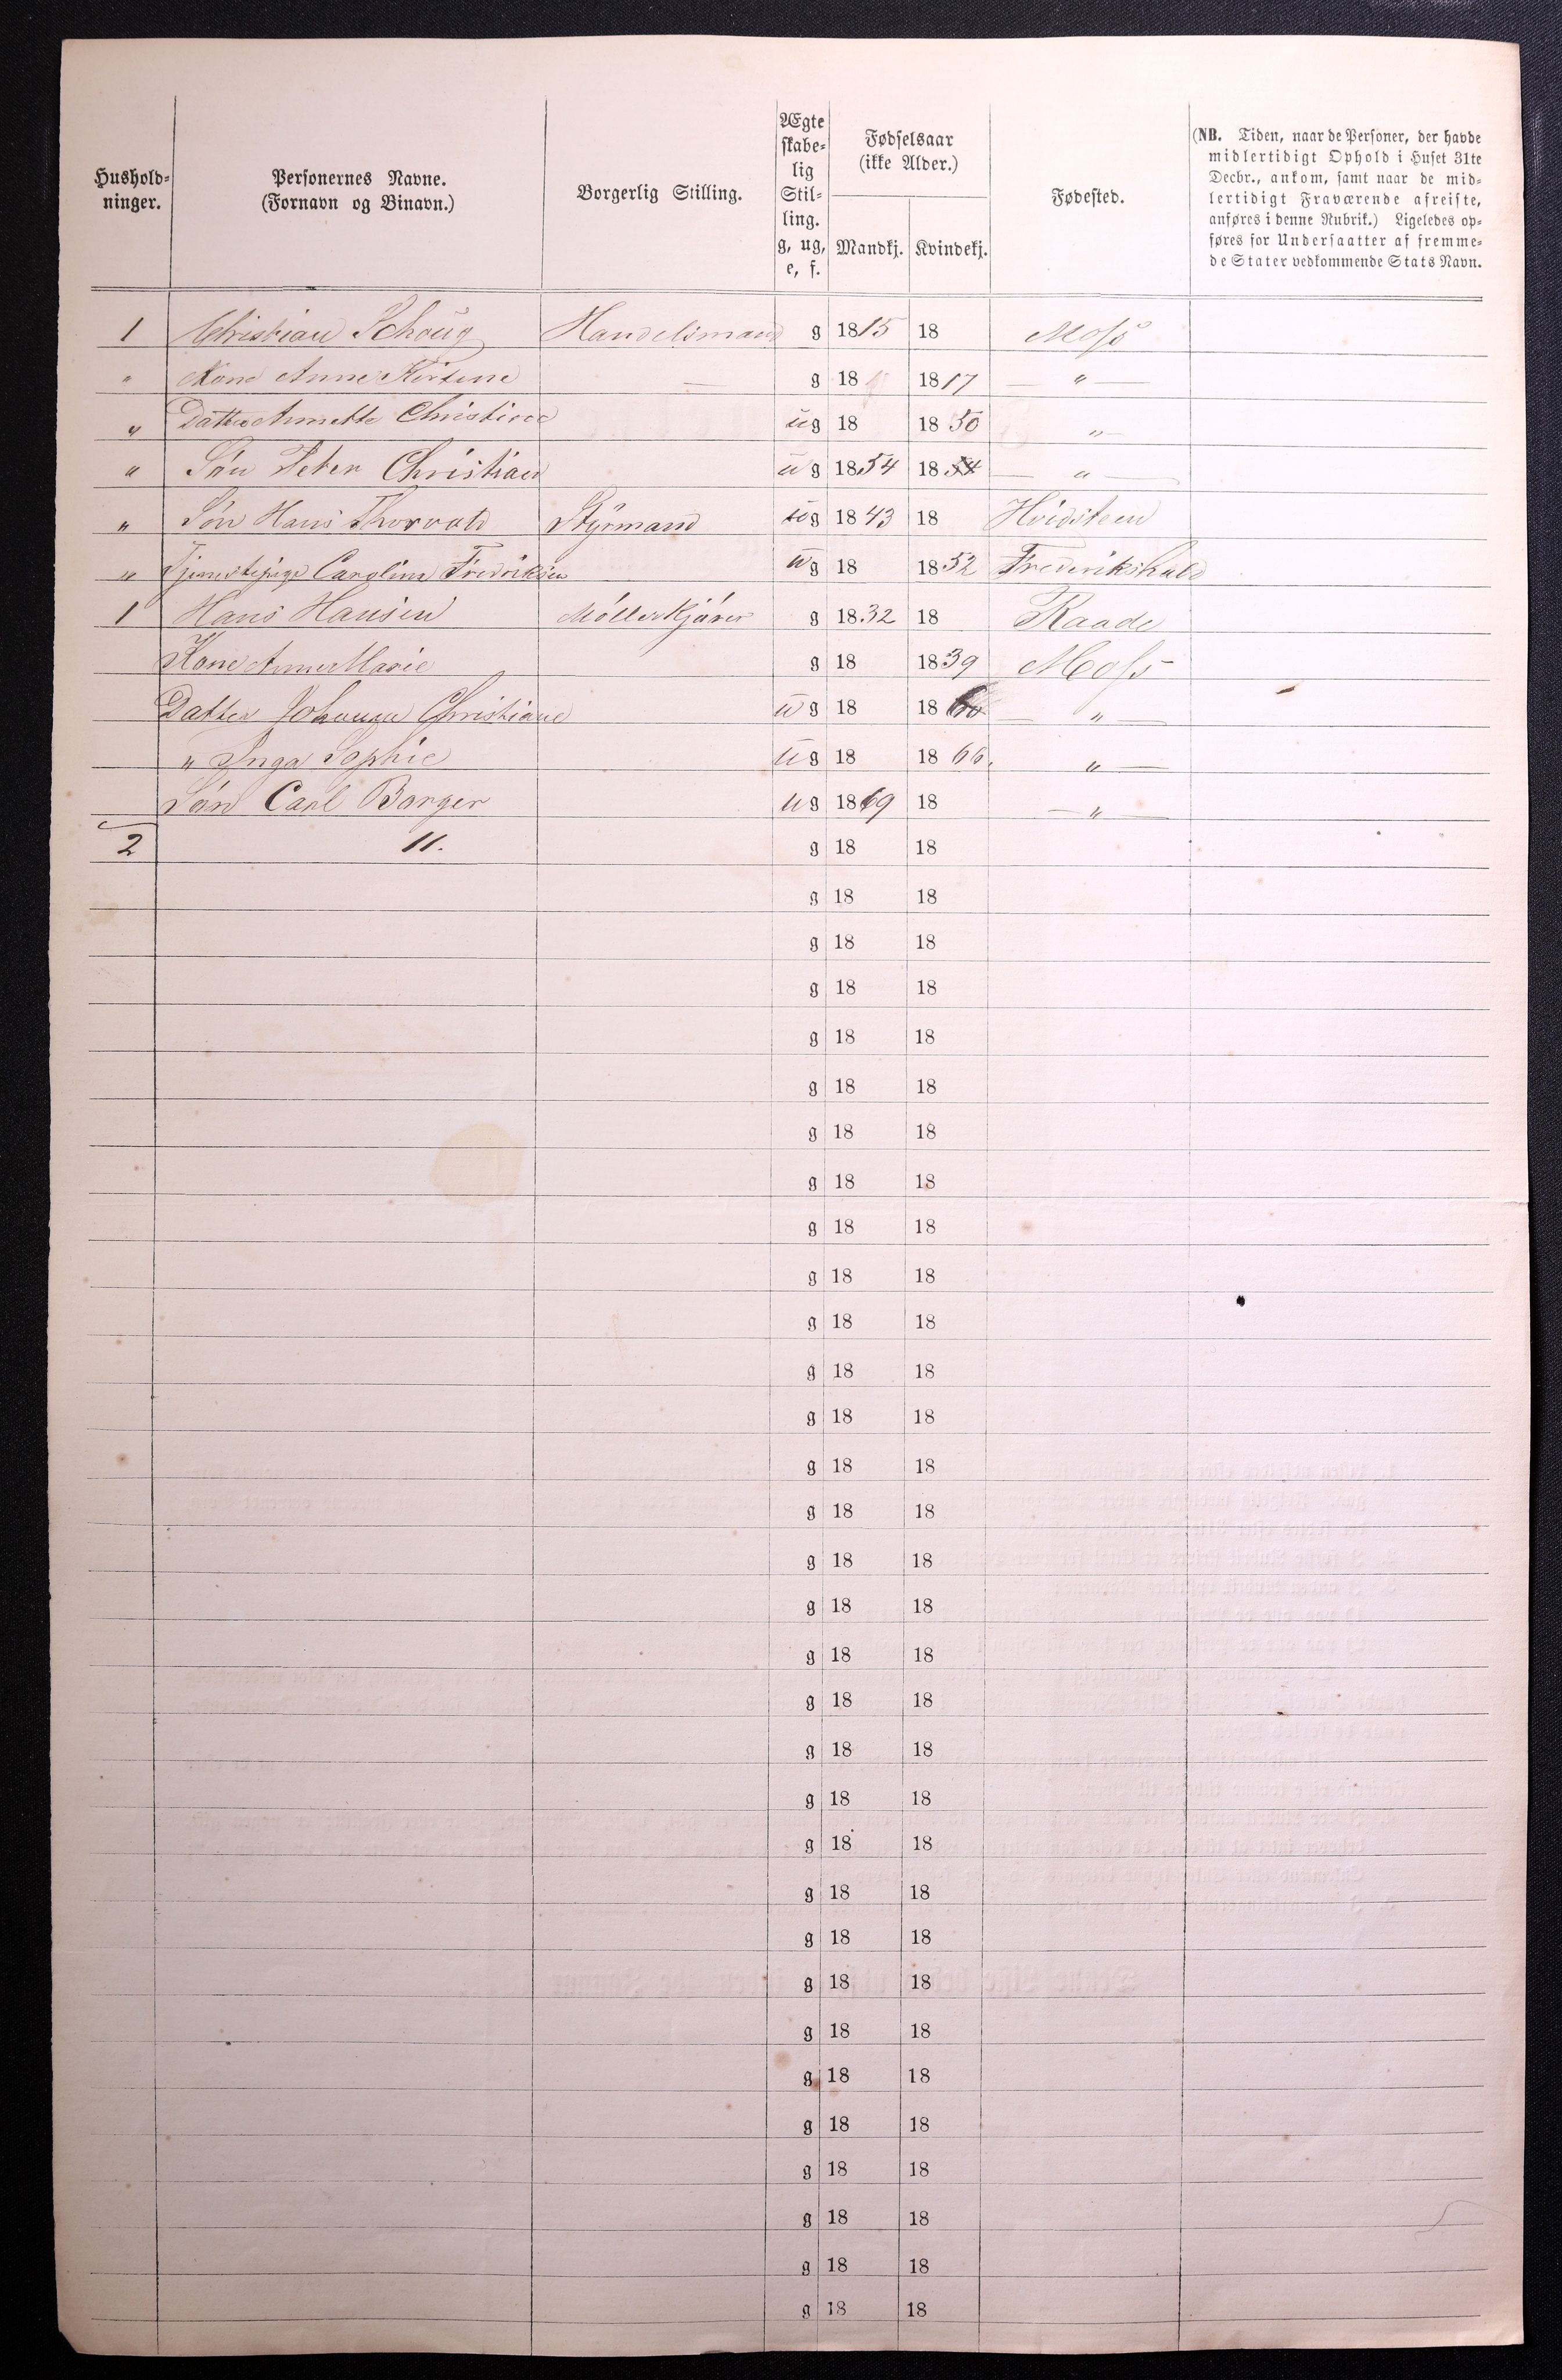 Hushold-
ninger.
Personernes Navne.
(Fornavn og Binavn.)
Borgerlig Stilling.
Ægte
skabe-
lig
Stil-
ling.
g, ug,
e, f.
Fødselsaar
(ikke Alder.)
Mandkj.
Kvindekj.
Fødested.
(NB. Tiden, naar de Personer, der havde
midlertidigt Ophold i Huset 31te
Decbr., ankom, samt naar de mid-
lertidigt Fraværende afreiste,
anføres i denne Rubrik.) Ligeledes op-
føres for Undersaatter af fremme-
de Stater vedkommende Stats Navn.
1 Christian Schoug Handelsmand g 1815 18 Moss
" Kone Anne Kirtine — g 18 1817 — " —
" Datter Annette Christine ug 18 1850 "
" Søn Peter Christian ug 1854 1854 — " —
" Søn Hans Thorvald Styrmand ug 1843 18 Hvidsteen
" Tjenestepige Caroline Fredriksen ug 18 1852 Frederikshald
1 Hans Hansen Møllerkjører g 1832 18 Raade
Kone Anne Marie g 18 1839 Moss
Datter Johanna Christiane ug 18 1860 — " —
" Inga Sophie ug 18 1866. " —
Søn Carl Borger ug 1869 18 — " —
2 11. g 18 18
g 18 18
g 18 18
g 18 18
g 18 18
g 18 18
g 18 18
g 18 18
g 18 18
g 18 18
g 18 18
g 18 18
g 18 18
g 18 18
g 18 18
g 18 18
g 18 18
g 18 18
g 18 18
g 18 18
g 18 18
g 18 18
g 18 18
g 18 18
g 18 18
g 18 18
g 18 18
g 18 18
g 18 18
g 18 18
g 18 18
g 18 18